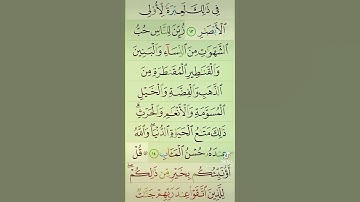 فِى ذَٰلِكَ لَعِبْرَةً لِّأُو۟لِى
ٱلْأَبْصَٰرِ ١٣ زُيِّنَ لِلنَّاسِ حُبُّ
ٱلشَّهَوَٰتِ مِنَ ٱلنِّسَآءِ وَٱلْبَنِينَ
وَٱلْقَنَٰطِيرِ ٱلْمُقَنطَرَةِ مِنَ
ٱلذَّهَبِ وَٱلْفِضَّةِ وَٱلْخَيْلِ
ٱلْمُسَوَّمَةِ وَٱلْأَنْعَٰمِ وَٱلْحَرْثِ
ذَٰلِكَ مَتَٰعُ ٱلْحَيَوٰةِ ٱلدُّنْيَا وَٱللَّهُ
عِندَهُۥ حُسْنُ ٱلْمَـَٔابِ ١٤ قُلْ
أَؤُنَبِّئُكُم بِخَيْرٍ مِّن ذَٰلِكُمْ
لِلَّذِينَ ٱتَّقَوْا۟ عِندَ رَبِّهِمْ جَنَّٰتٌ